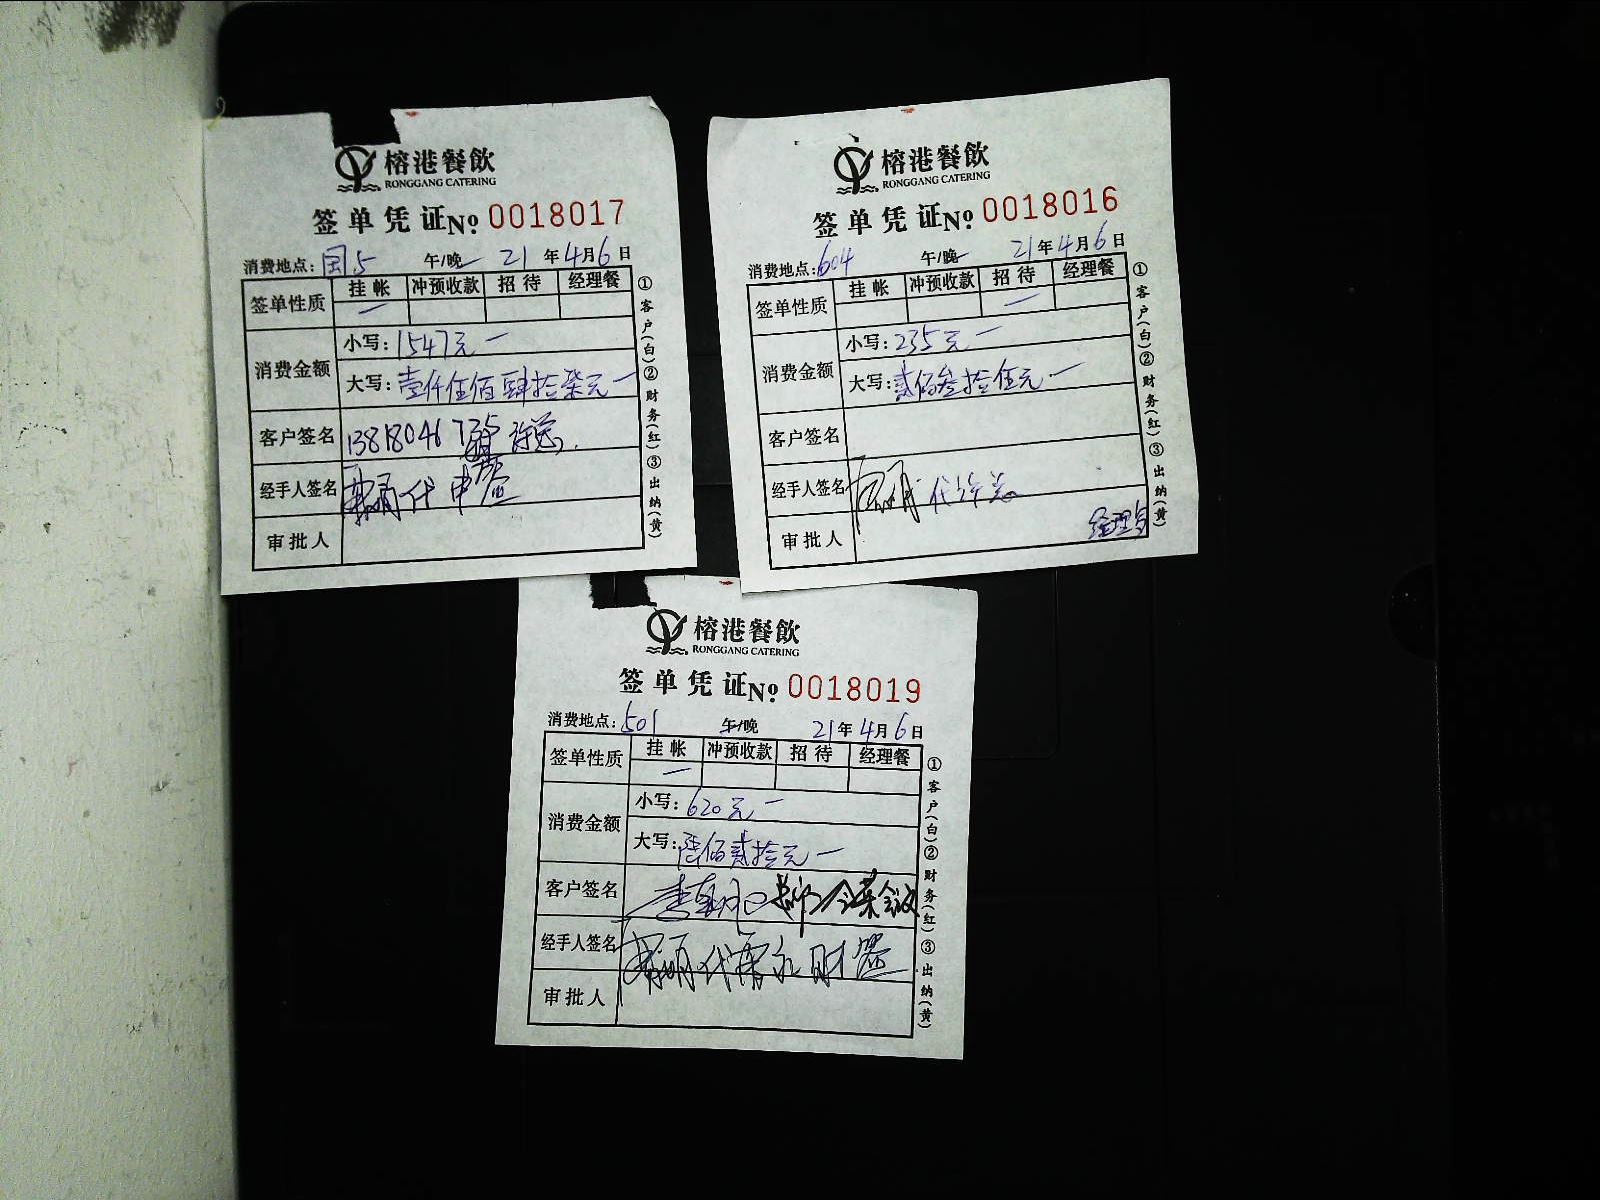 榕港餐飲
RONGGANG CATERING
签单凭证No. 0018017
消费地点：国5 午/晚 21年4月6日
签单性质 挂帐 冲预收款 招待 经理餐
消费金额
小写：1547元
大写：壹仟伍佰肆拾柒元
客户签名 13818046735
经手人签名
审批人
①客户(白)②财务(红)③出纳(黄)
榕港餐飲
RONGGANG CATERING
签单凭证No. 0018016
消费地点：604 午/晚 21年4月6日
签单性质 挂帐 冲预收款 招待 经理餐
消费金额
小写：235元
大写：贰佰叁拾伍元
客户签名
经手人签名
审批人
①客户(白)②财务(红)③出纳(黄)
榕港餐飲
RONGGANG CATERING
签单凭证No. 0018019
消费地点：501 午/晚 21年4月6日
签单性质 挂帐 冲预收款 招待 经理餐
消费金额
小写：620元
大写：陆佰贰拾元
客户签名
经手人签名
审批人
①客户(白)②财务(红)③出纳(黄)